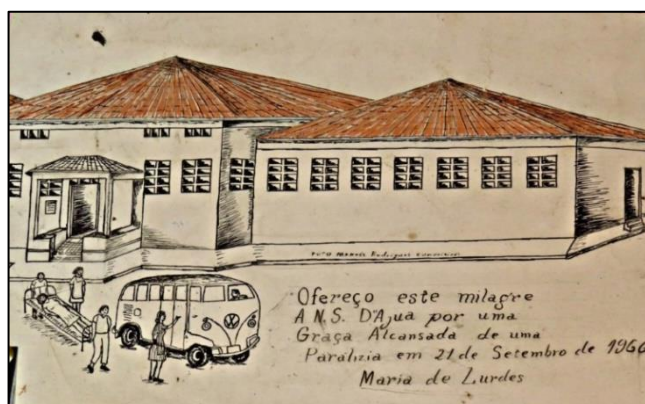 Ofereço este milagre
A N.S. D'Ajua por uma
Graça Alcansada de uma
Paralizia em 21 de Setembro de 1966
Maria de Lurdes